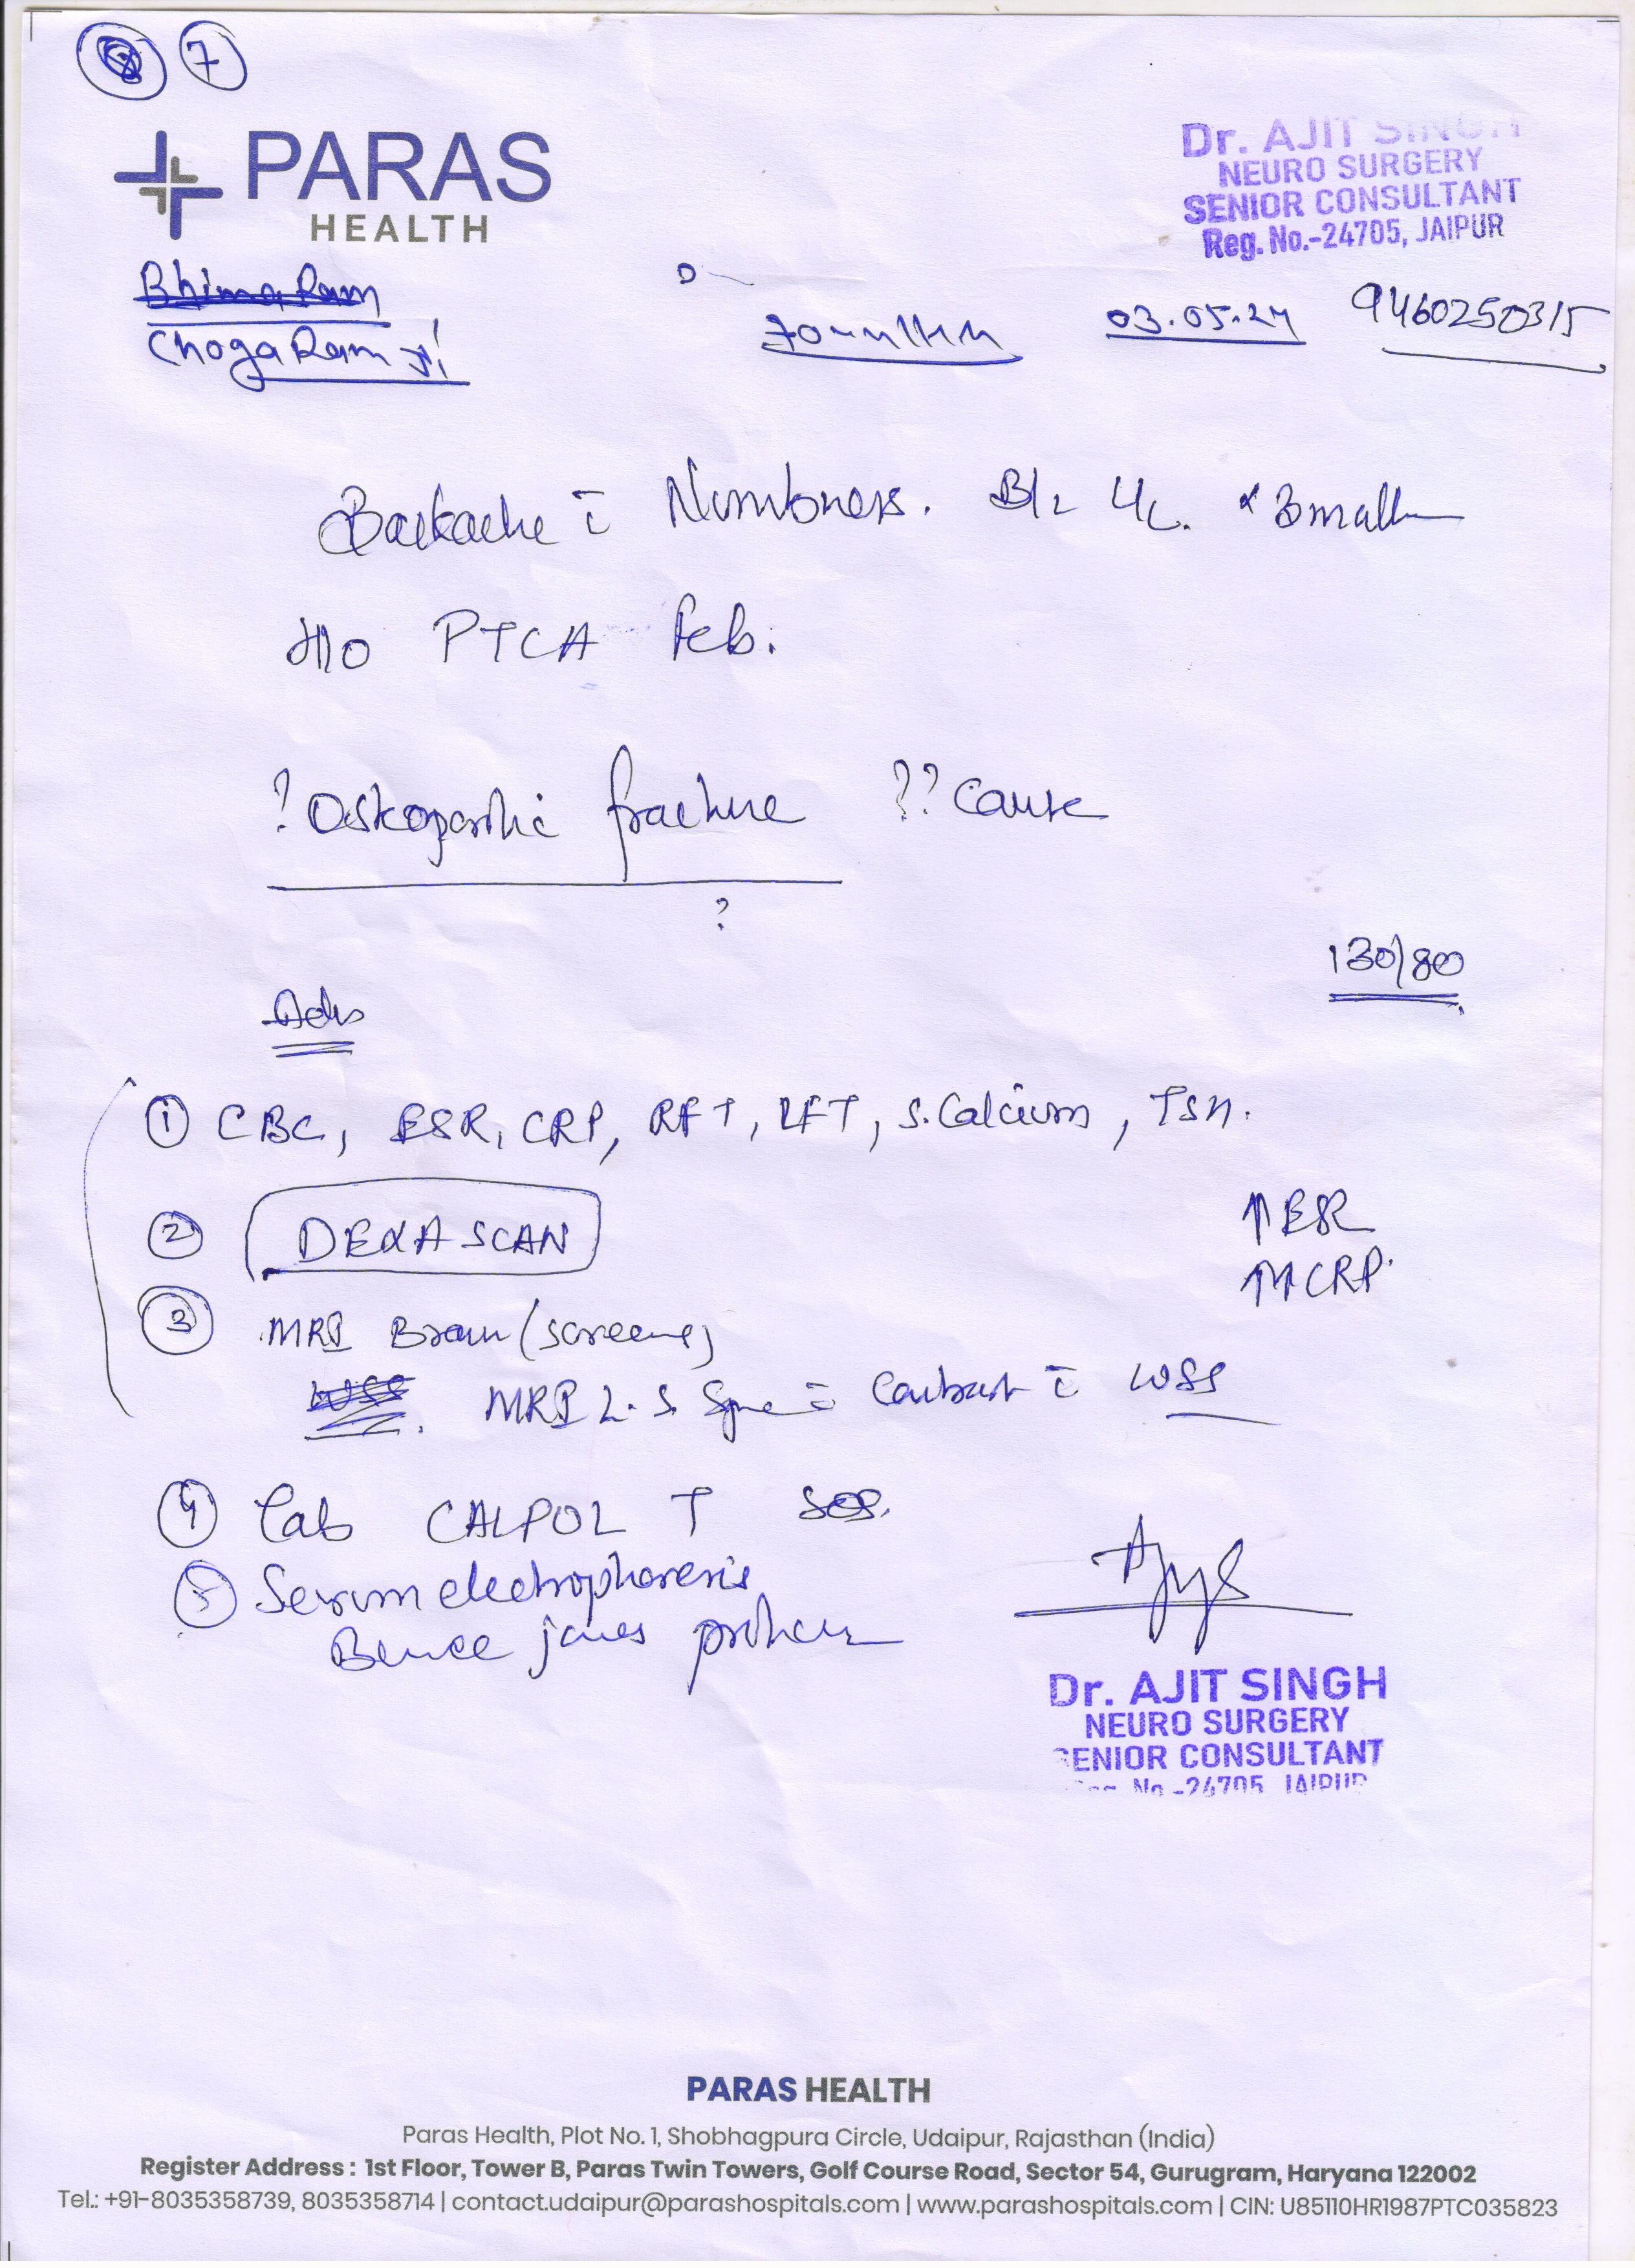 8 7
PARAS
HEALTH
Dr. AJIT SINGH
NEURO SURGERY
SENIOR CONSULTANT
Reg. No.-24705, JAIPUR
Bhima Ram
Choga Ram ji
03.05.24 9460250315
Backache c̄ Numbness. B/L L/L. x 3 month
H/O PTCA Feb.
? Osteoporotic fracture ?? Cause
?
130/80
Adv
① CBC, ESR, CRP, RFT, LFT, S. Calcium, TSH.
② DEXA SCAN
↑ ESR
↑↑ CRP.
③ MRI Brain (screening)
WSS. MRI L.S Spine c̄ Contrast c̄ WSS
④ Tab CALPOL T SOS.
⑤ Serum electrophoresis
Bence jones protein
Dr. AJIT SINGH
NEURO SURGERY
SENIOR CONSULTANT
Reg. No.-24705, JAIPUR
PARAS HEALTH
Paras Health, Plot No. 1, Shobhagpura Circle, Udaipur, Rajasthan (India)
Register Address : 1st Floor, Tower B, Paras Twin Towers, Golf Course Road, Sector 54, Gurugram, Haryana 122002
Tel.: +91-8035358739, 8035358714 | contact.udaipur@parashospitals.com | www.parashospitals.com | CIN: U85110HR1987PTC035823